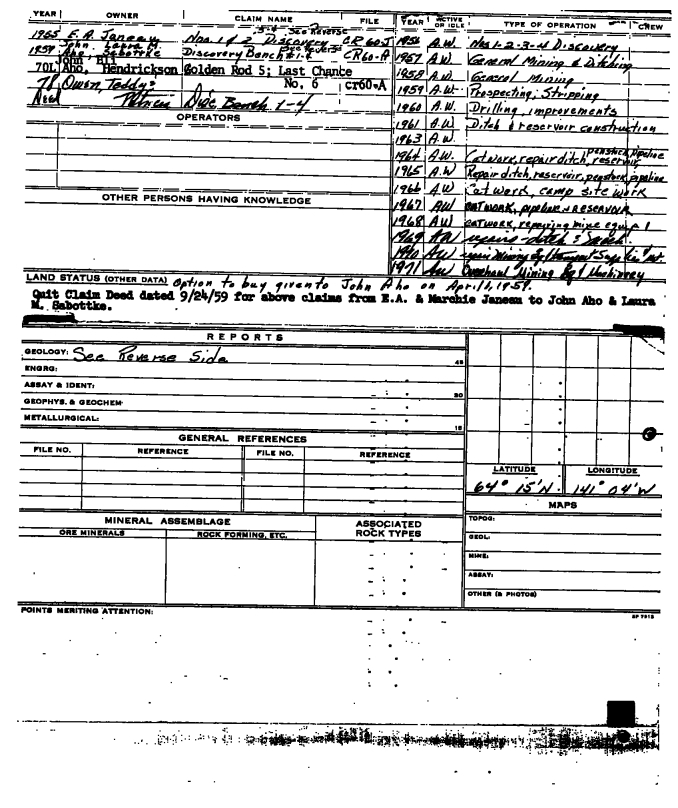 YEAR OWNER CLAIM NAME FILE YEAR ACTIVE OR IDLE TYPE OF OPERATION CREW
1955 E.A. Janeaux Nos. 1 & 2 Discovery CR 60-J
See Reverse
1959 John Aho Laura M. Sabottke Discovery Bench #1-4 See Reverse CR60-A
70L John Aho, Hendrickson Golden Rod 5; Last Chance No. 6 cr60-A
78 Owen, Teddy
Disc. Bench 1-4
OPERATORS
OTHER PERSONS HAVING KNOWLEDGE
1956 A.W. Nos 1-2-3-4 Discovery
1957 A.W. General Mining & Ditching
1958 A.W. General Mining
1959 A.W. Prospecting, Stripping
1960 A.W. Drilling, improvements
1961 A.W. Ditch & reservoir construction
1963 A.W.
1964 A.W. Cat work, repair ditch, reservoir, penstock, pipeline
1965 A.W Repair ditch, reservoir, penstock, pipeline
1966 A.W Cat work, camp site work
1967 AW CATWORK, pipeline & RESERVOIR
1968 AW CATWORK, repairing mine equip
1969 AW repairs-ditch &
1970 AW
1971 AW Overhaul Mining Eq & Machinery
LAND STATUS (OTHER DATA) Option to buy given to John Aho on April 1, 1959.
Quit Claim Deed dated 9/24/59 for above claims from E.A. & Marchie Janeau to John Aho & Laura
M. Sabottke.
REPORTS
GEOLOGY: See Reverse Side
45
ENGRG:
ASSAY & IDENT:
30
GEOPHYS. & GEOCHEM:
METALLURGICAL:
15
GENERAL REFERENCES
FILE NO. REFERENCE FILE NO. REFERENCE
LATITUDE LONGITUDE
64° 15'N. 141° 04'W
MINERAL ASSEMBLAGE
ORE MINERALS ROCK FORMING, ETC.
ASSOCIATED
ROCK TYPES
MAPS
TOPOG:
GEOL:
MINE:
ASSAY:
OTHER (& PHOTOS)
POINTS MERITING ATTENTION:
SP 7913